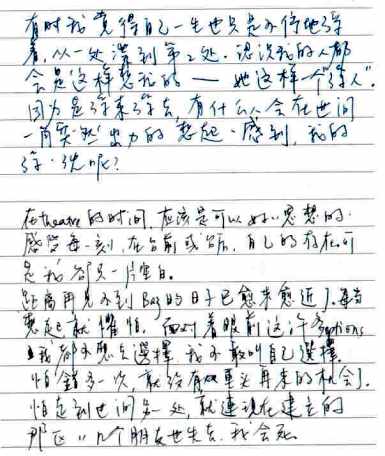 有时我觉得自己一生也只是不停地漂
着,从一处漂到第二处。认识我的人都
会是这样想我的 — 她这样一个"漂人"。
因为是漂来漂去,有什么人会在世间
一角突然出力的想起、感到,我的
漂·洗呢?
在theatre的时间,应该是可以好好思想的。
感受每一刻,在台前或台后,自己的存在可
是我都只一片空白。
距离再见不到 的日子已愈来愈近了。每当
想起就惧怕。面对着眼前这许多options
我都不想去选择,我不敢叫自己选择。
怕错多一次,就没有重头再来的机会了。
怕走到世间另一处,就连现在建立的
那区区几个朋友也失去。我会死